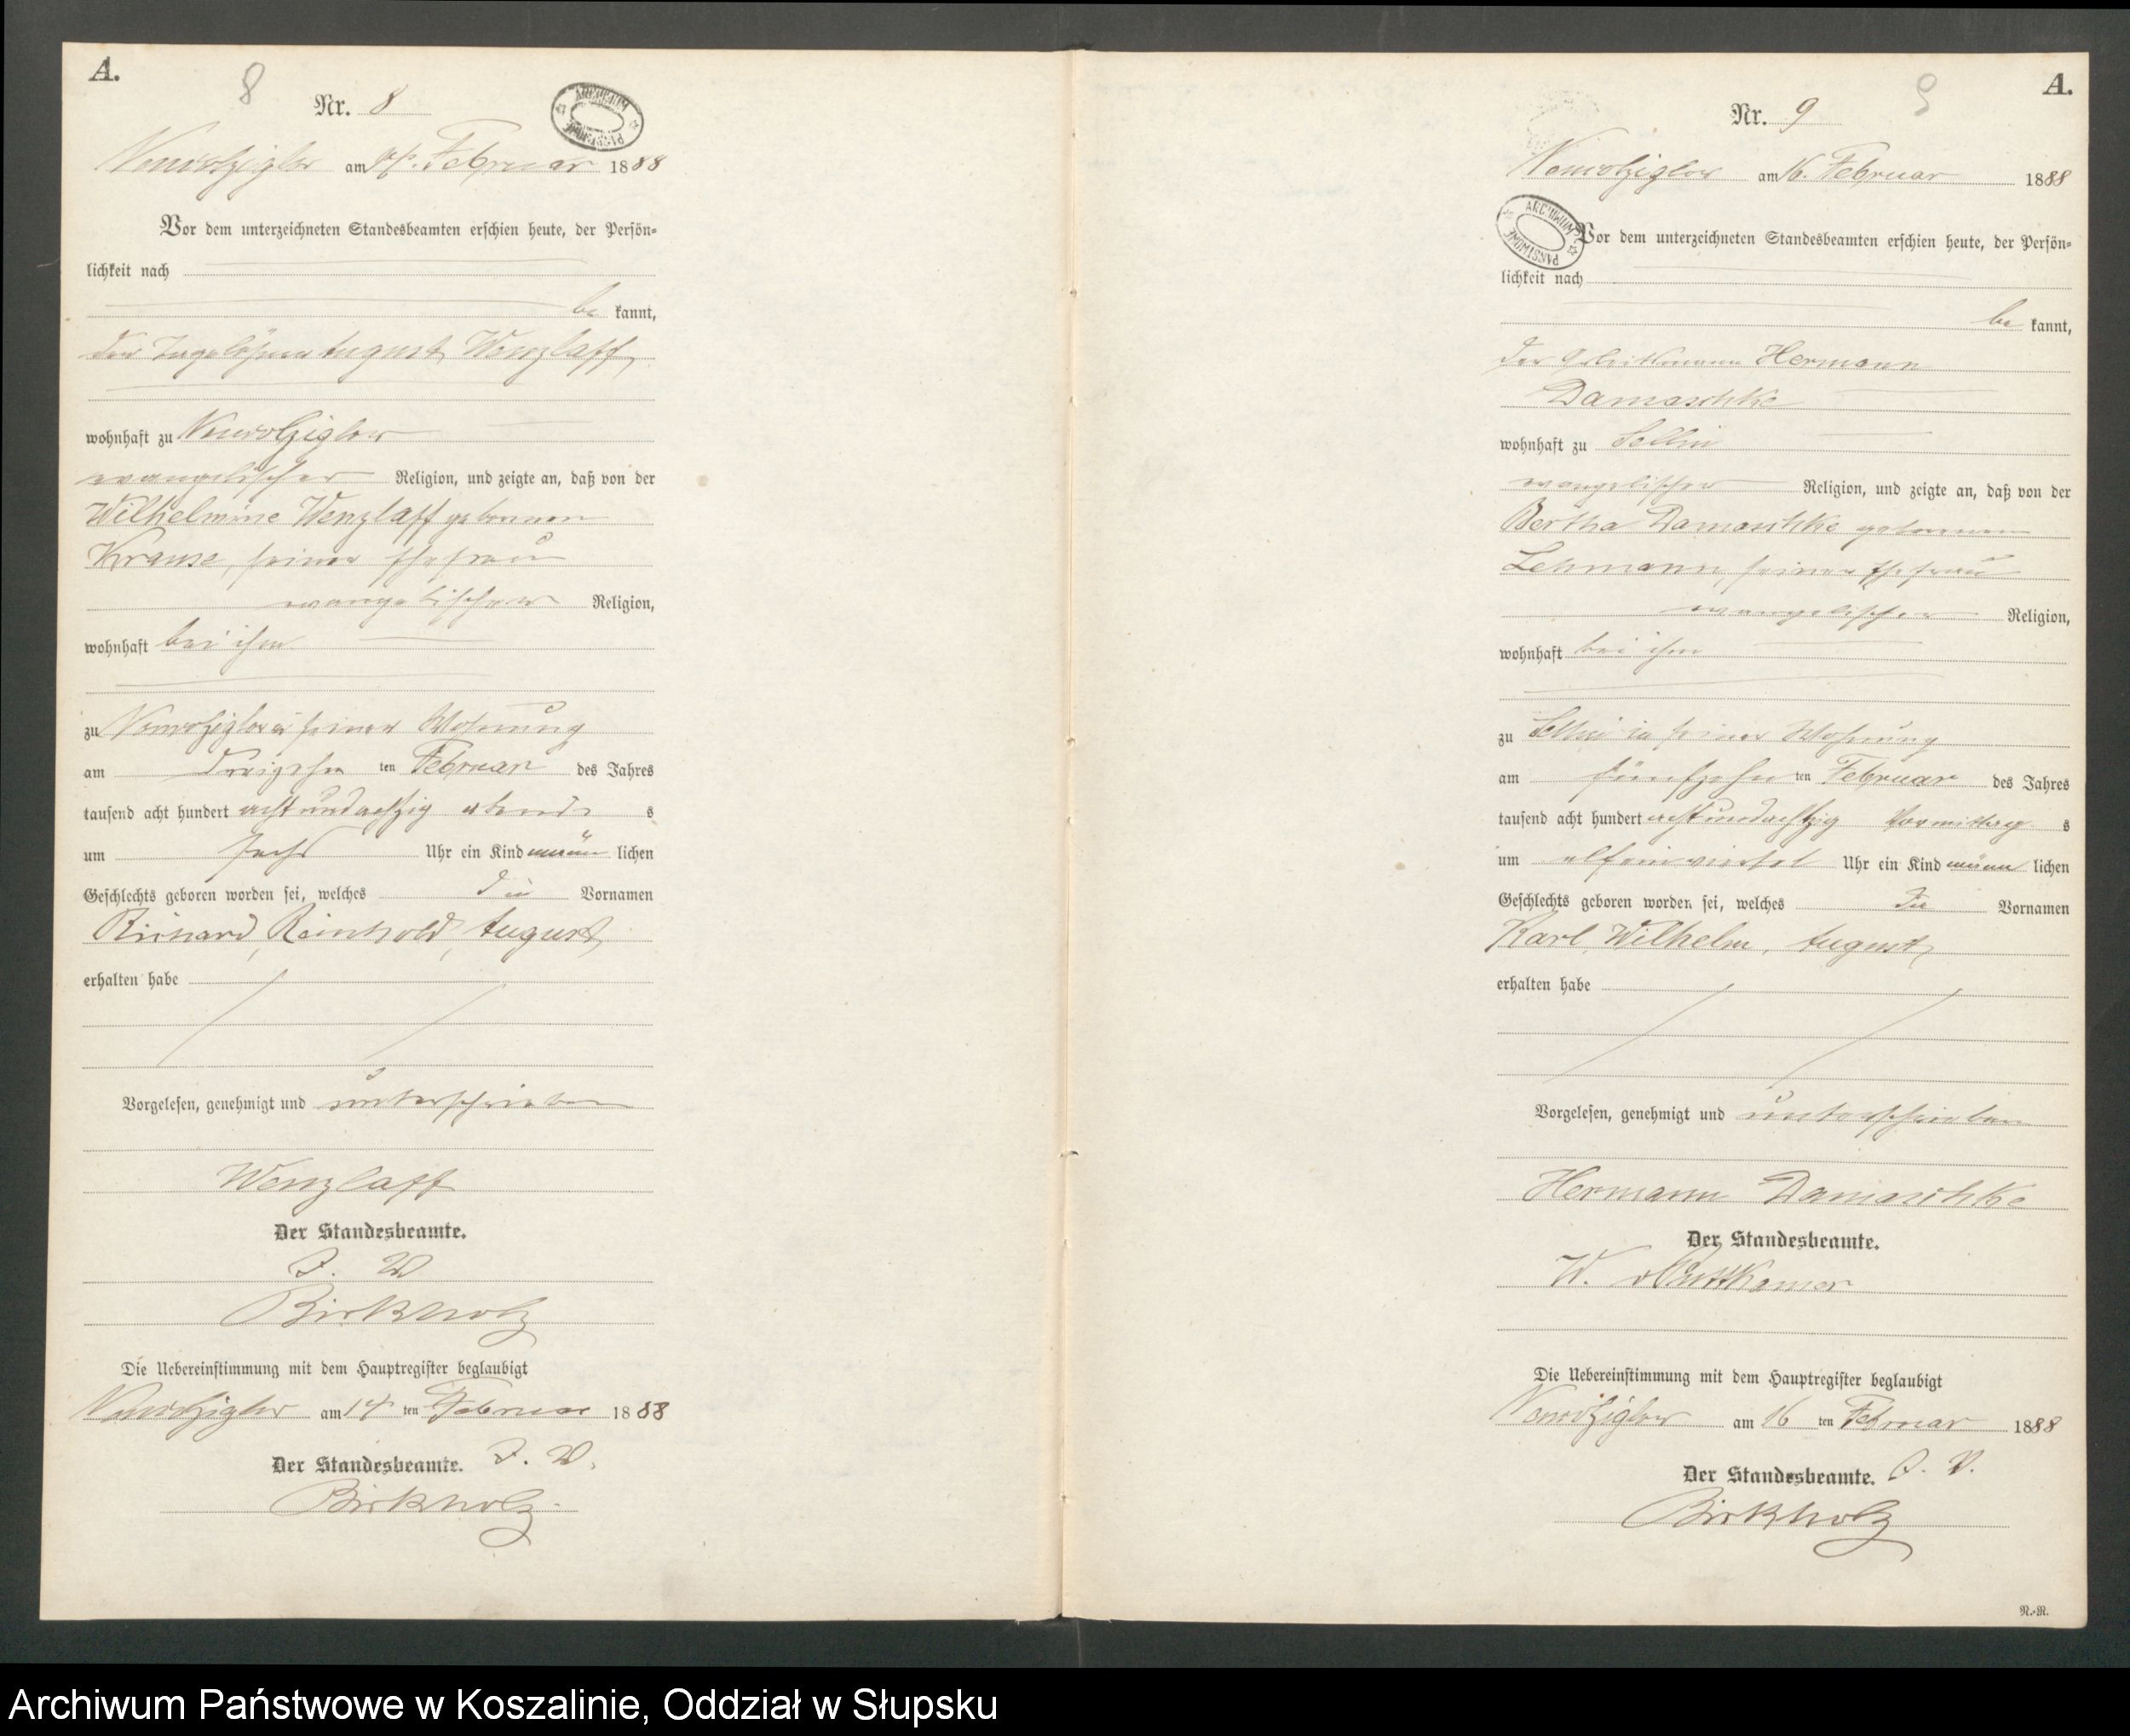 A.
8
Nr. 8
ARCHIWUM PAŃSTWOWE
Neuwolziglow am 14. Februar 1888
Vor dem unterzeichneten Standesbeamten erschien heute, der Persön-
lichkeit nach
be kannt,
der Tagelöhner August Wenzlaff,
wohnhaft zu Neuwolziglow
evangelischer Religion, und zeigte an, daß von der
Wilhelmine Wenzlaff geborenen
Krause, seiner Ehefrau
evangelischer Religion,
wohnhaft bei ihm
zu Neuwolziglow in seiner Wohnung
am dreizehn ten Februar des Jahres
tausend acht hundert acht und achtzig abends
um sechs Uhr ein Kind männ lichen
Geschlechts geboren worden sei, welches die Vornamen
Richard, Reinhold, August,
erhalten habe
Vorgelesen, genehmigt und unterschrieben
Wenzlaff
Der Standesbeamte.
J. V.
Birkholz
Die Uebereinstimmung mit dem Hauptregister beglaubigt
Neuwolziglow am 14 ten Februar 1888
Der Standesbeamte. J. V.
Birkholz.
A.
9
Nr. 9
Neuwolziglow am 16. Februar 1888
ARCHIWUM PAŃSTWOWE
Vor dem unterzeichneten Standesbeamten erschien heute, der Persön-
lichkeit nach
be kannt,
der Arbeitsmann Hermann
Damaschke
wohnhaft zu Sellin
evangelischer Religion, und zeigte an, daß von der
Bertha Damaschke geborenen
Lehmann, seiner Ehefrau
evangelischer Religion,
wohnhaft bei ihm
zu Sellin in seiner Wohnung
am fünfzehn ten Februar des Jahres
tausend acht hundert acht und achtzig Vormittag s
um elfeinviertel Uhr ein Kind männ lichen
Geschlechts geboren worden sei, welches die Vornamen
Karl, Wilhelm, August,
erhalten habe
Vorgelesen, genehmigt und unterschrieben
Hermann Damaschke
Der Standesbeamte.
W. v Puttkamer
Die Uebereinstimmung mit dem Hauptregister beglaubigt
Neuwolziglow am 16 ten Februar 1888
Der Standesbeamte. J. V.
Birkholz
N.-N.
Archiwum Państwowe w Koszalinie, Oddział w Słupsku